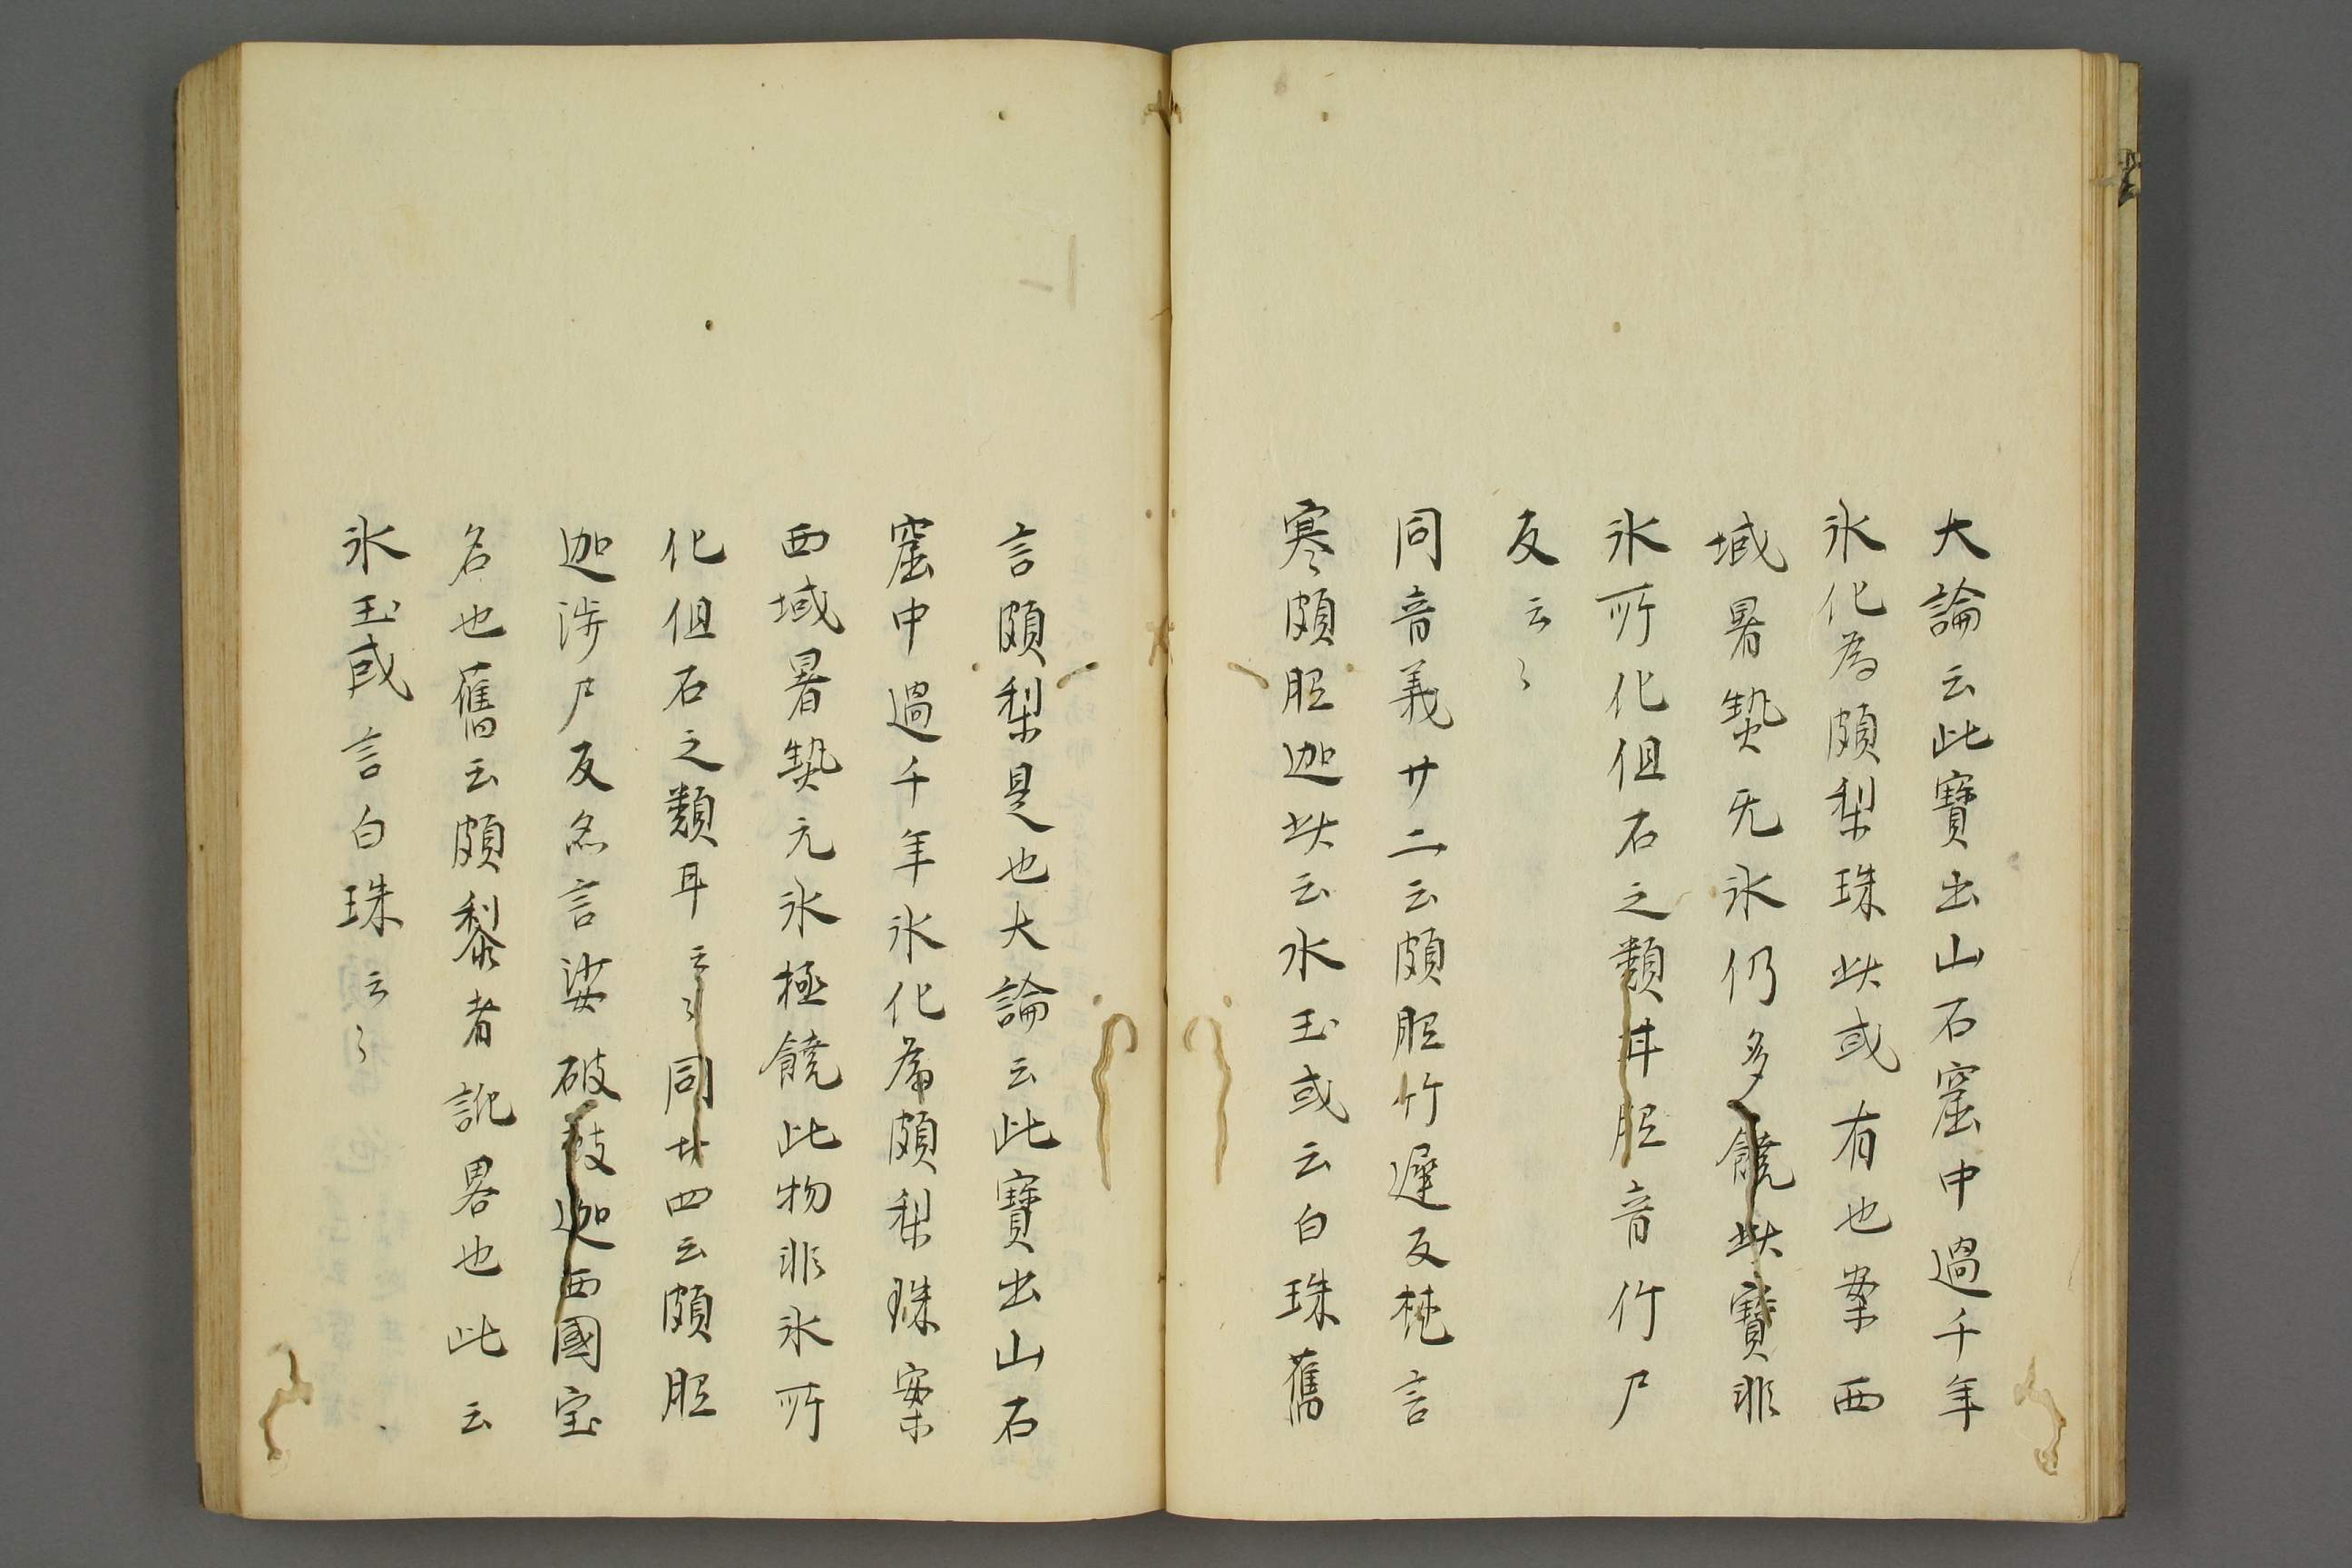 大論云此寶出山石窟中過千年
氷化為頗梨珠此或有也案西
域暑𤍠无氷仍多饒此寶非
氷所化但石之類耳胝音竹尸
反云〻
同音義廿二云頗胝竹遲反梵言
塞頗胝迦此云水玉或云白珠舊
言頗梨是也大論云此寶出山石
窟中過千年氷化為頗梨珠案
西域暑𤍠无氷極饒此物非氷所
化但石之類耳云〻同廿四云頗胝
迦渉尸反亦言娑破致迦西國宝
名也舊云頗黎者訛畧也此云
氷玉或言白珠云〻